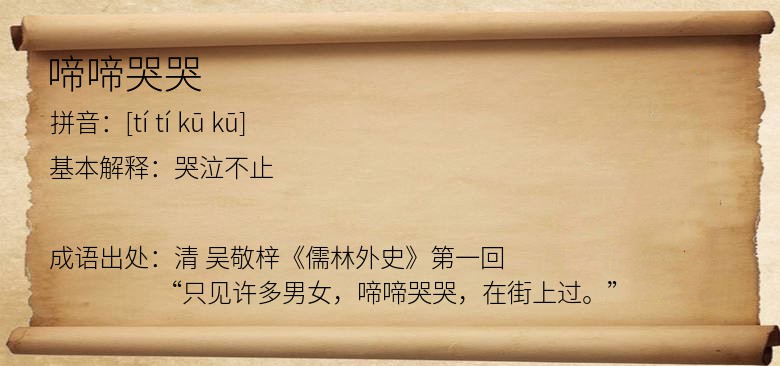 啼啼哭哭
拼音：[tí tí kū kū]
基本解释：哭泣不止
成语出处：清 吴敬梓《儒林外史》第一回
“只见许多男女，啼啼哭哭，在街上过。”